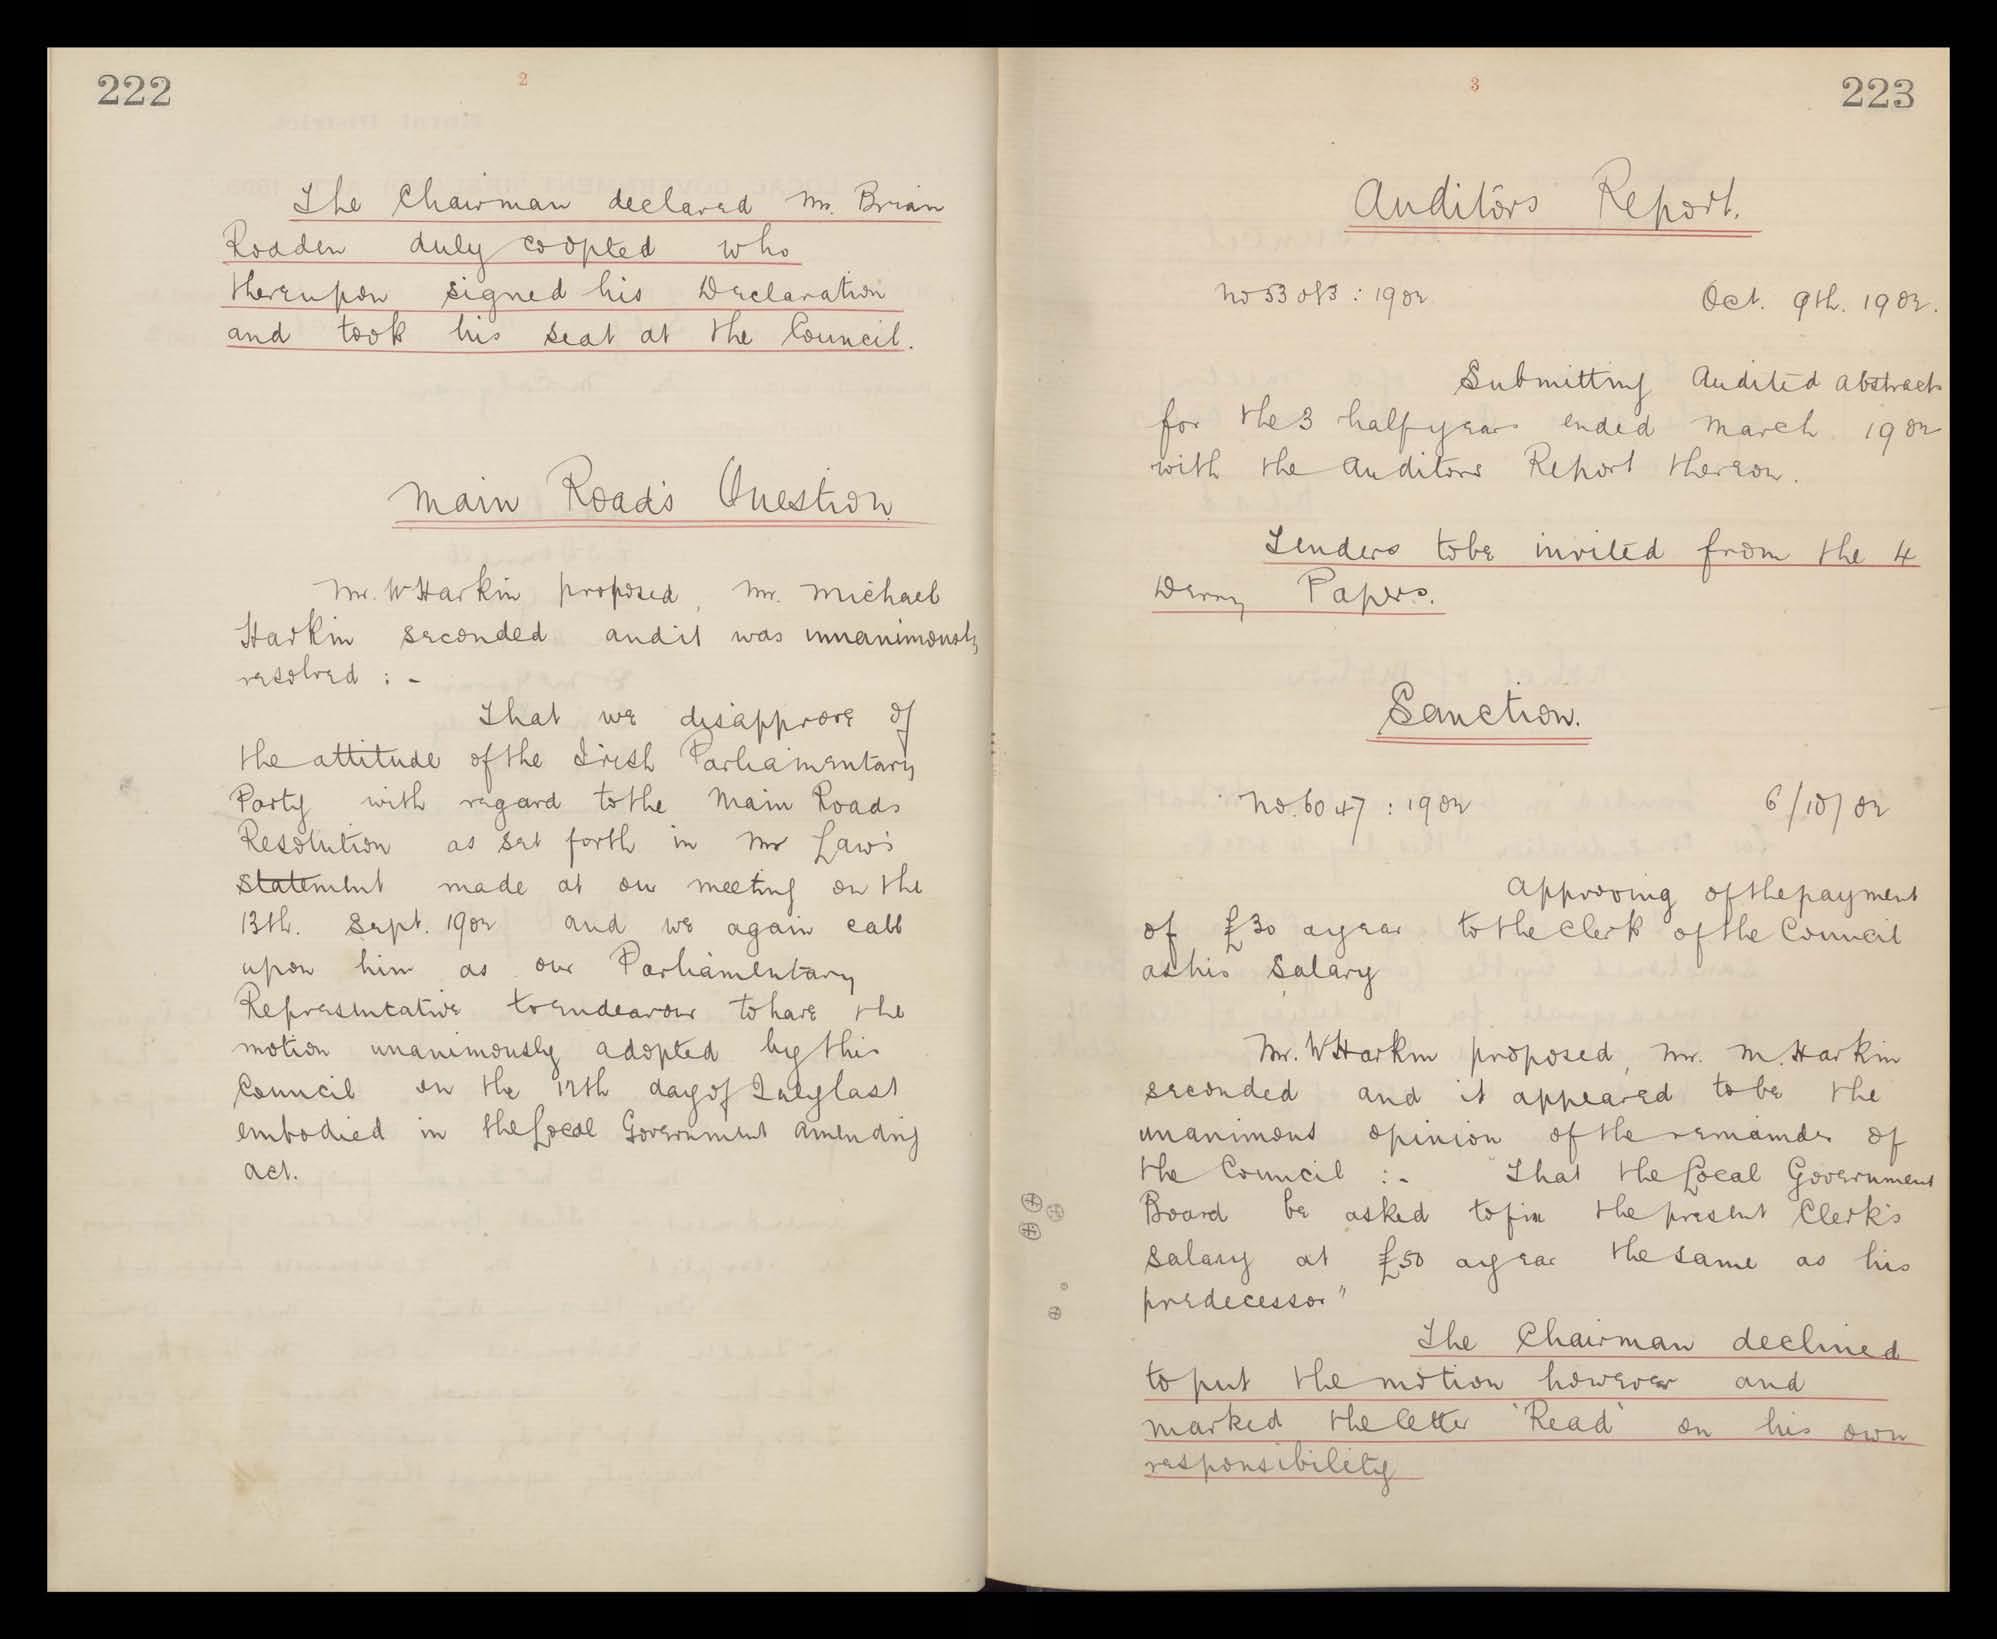 222
2
The Chairman declared Mr. Brian
Rodden duly coopted who
thereupon signed his Declaration
and took his seat at the Council.
Main Road's Question
Mr. W Harkin proposed, Mr. Michael
Harkin seconded and it was unanimously
resolved : -
That we disapprove of
the attitude of the Irish Parliamentary
Party with regard to the Main Roads
Resolution as set forth in Mr Law's
statement made at our meeting on the
13th. Sept. 1902 and we again call
upon him as our Parliamentary
Representative to endeavour to have the
motion unanimously adopted by this
Council on the 12th day of July last
embodied in the Local Government Amending
Act.
3
223
Auditors Report.
Oct. 9th. 1902.
Submitting Audited Abstracts
for the 3 half years ended March 1902
with the Auditors Report thereon.
Tenders to be invited from the 4
Derry Papers.
Sanction.
No. 6047 : 1902 6/10/02
Approving of the payment
of £30 a year to the Clerk of the Council
as his Salary
Mr. W Harkin proposed, Mr. M. Harkin
seconded and it appeared to be the
unanimous opinion of the remainder of
the Council : - "That the Local Government
Board be asked to fix the present Clerk's
Salary at £50 a year the same as his
predecessor"
The Chairman declined
to put the motion however and
marked the letter 'Read' on his own
responsibility